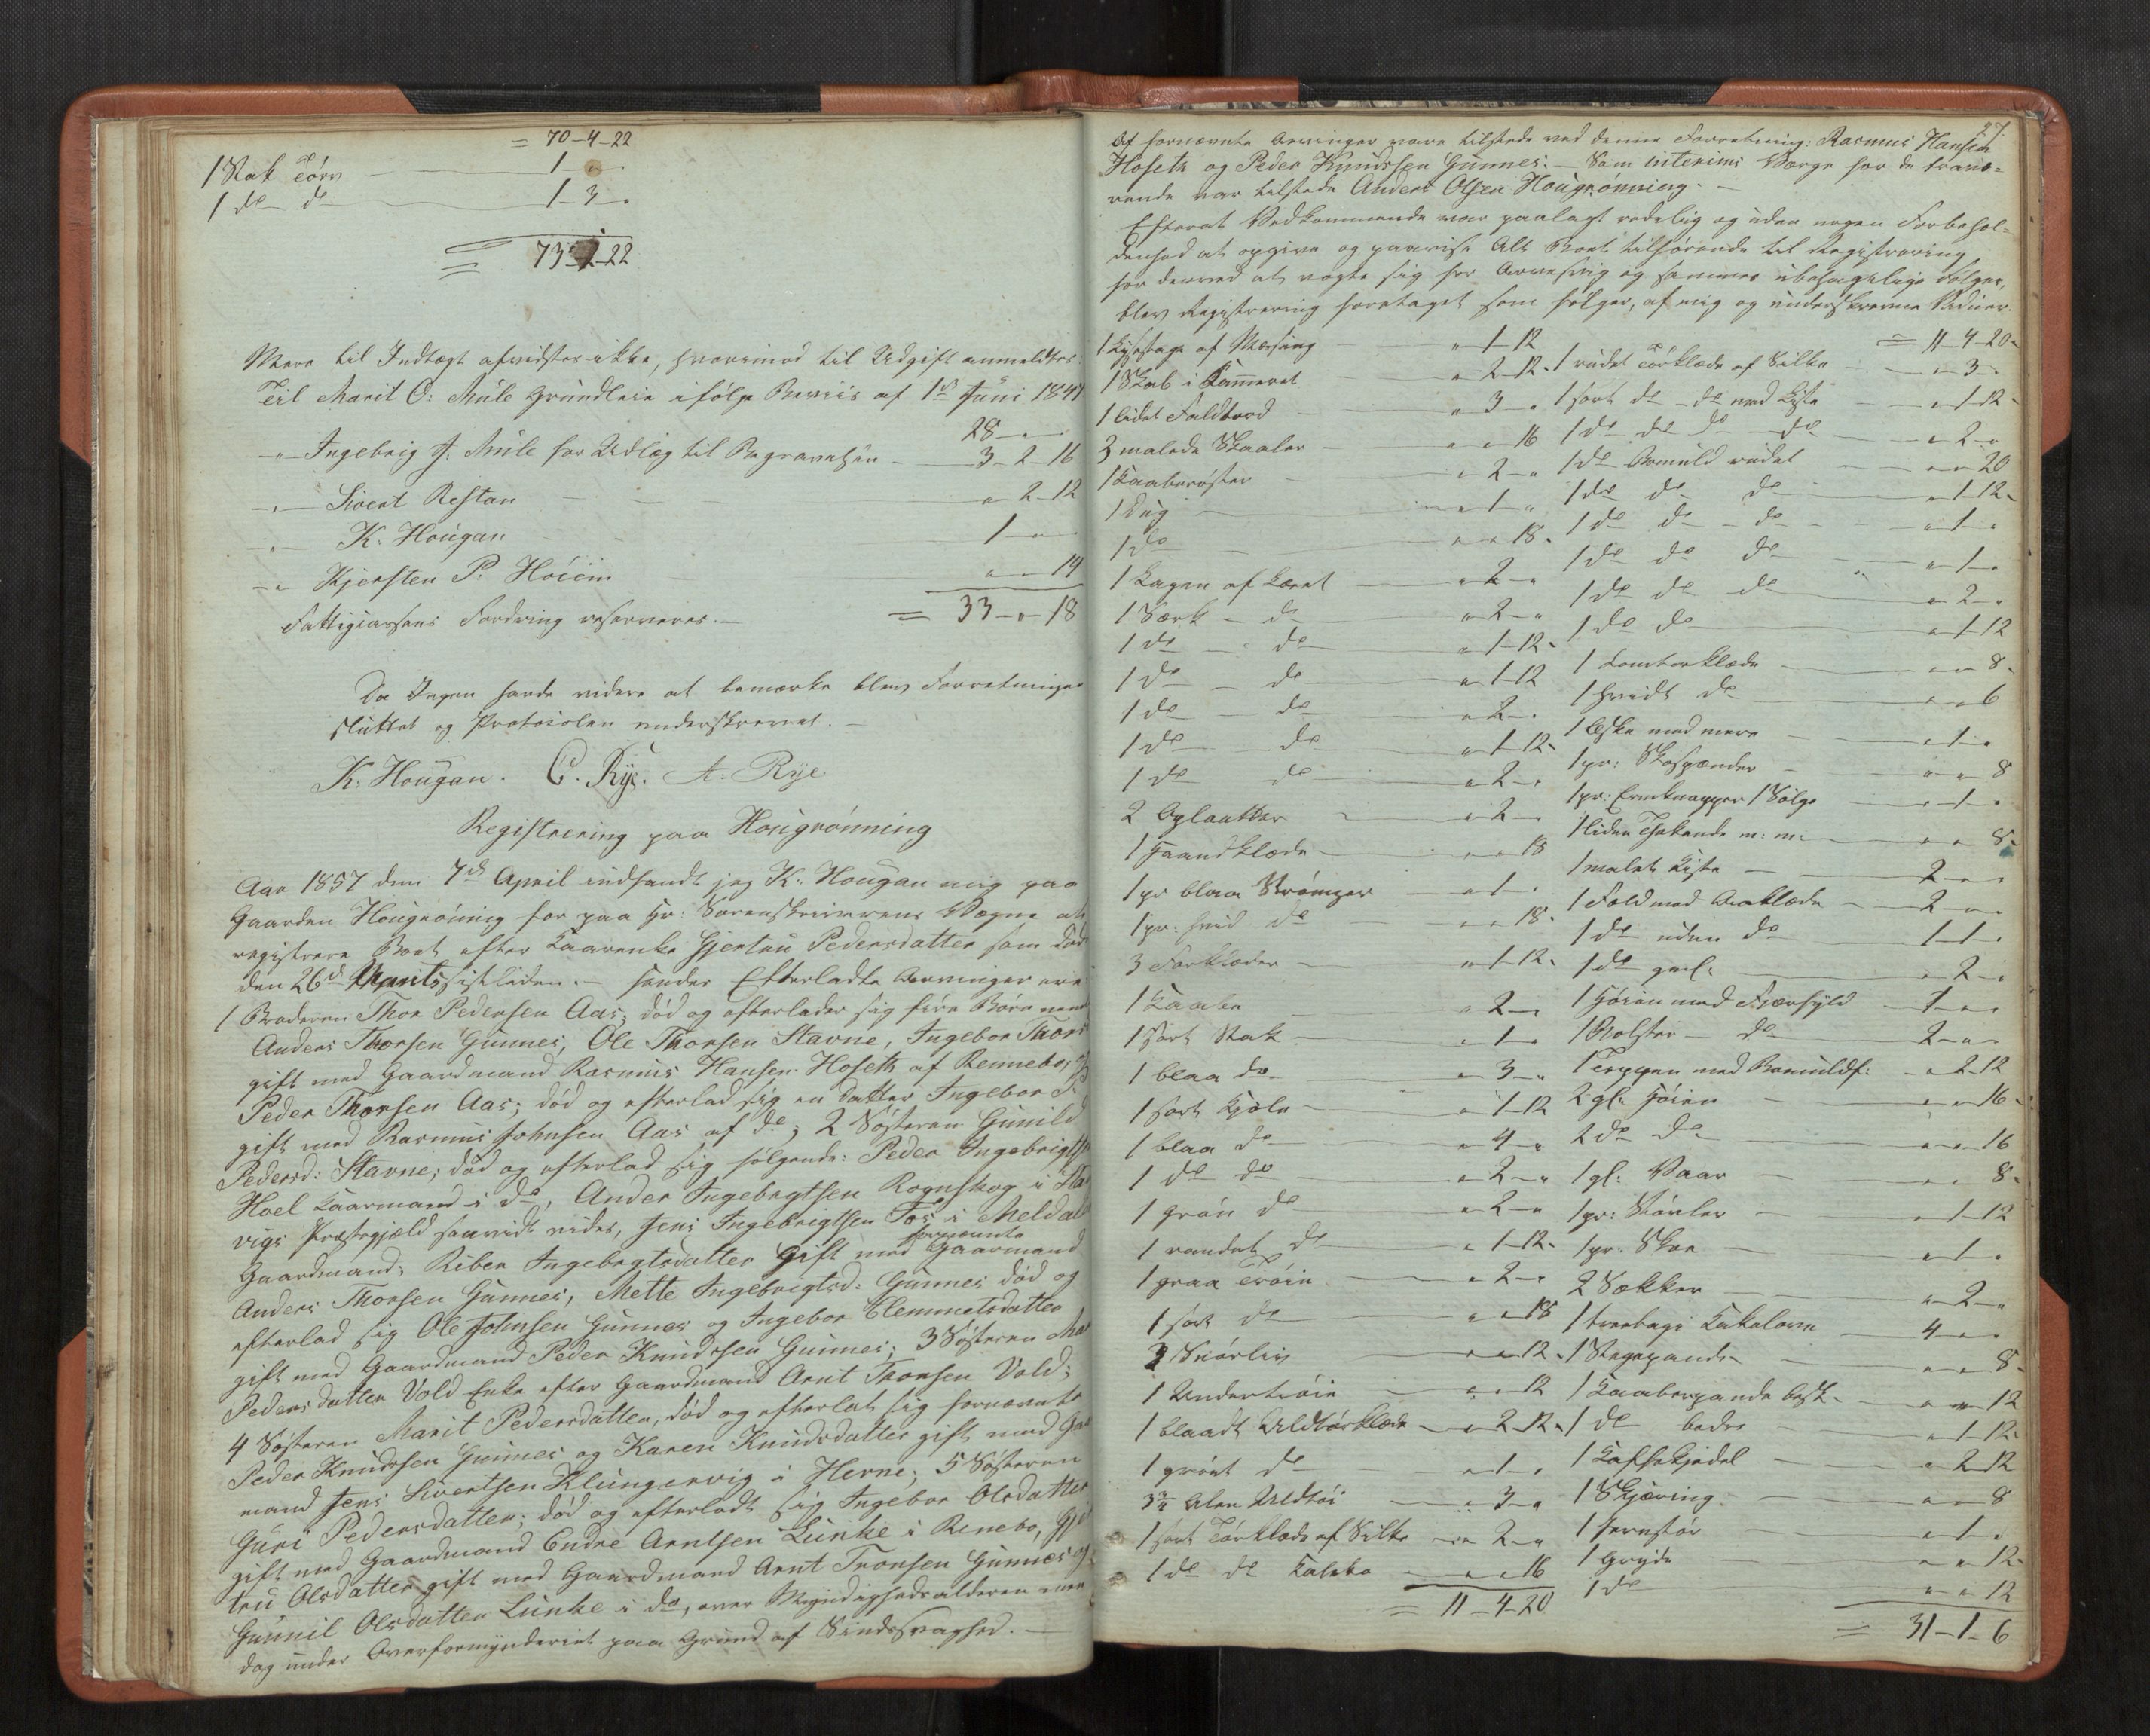 = 70-4-22
1 Stak Törv — 1 - „
1 do do — 1-3 „
= 73-2-22
Mere til Indtægt afvidstes ikke, hvorimod til Udgift anmeldtes:
Til Marit O: Mule Grundleie ifölge Beviis af 1ste Juni 1847
28 - „ -
„ Ingebrig J: Mule for Udlæg til Begravelsen — 3-2-16
„ Sivert Restan — „ 2-12
„ K. Hougan — 1 - „
„ Kjersten P. Höiem — „ „ 14
Fattigkassens Fordring reserveres. — = 33 - „ - 18
Da Ingen havde videre at bemærke blev Forretningen
sluttet og Protocolen underskrevet. —
K. Hougan. C. Rÿe. A. Rye.
Registrering paa Hougrönning
Aar 1857 den 7de April indfandt jeg K. Hougan mig paa
Gaarden Hougrönnig for paa Hr: Sorenskriverens Vegne at
registrere Boet efter Kaarenke Gjertru Pedersdatter som död
den 26de Marts sistleden. — Hendes Efterladte Arvinger ere
1 Broderen Thor Pedersen Aas, död og efterlader sig fire Börn
Anders Thorsen Gunnes, Ole Thorsen Stavne, Ingebor Thors
gift med Gaardmand Rasmus Hansen Hoseth af Rennebo,
Peder Thorsen Aas; död og efterlod sig en Datter Ingebor P.
gift med Rasmus Johnsen Aas af do; 2 Sösteren Gunild
Pedersd: Stavne; död og efterlod sig fölgende: Peder Ingebrigts
Hoel Kaarmand i do, Ander Ingebrigtsen Rognskog i
vigs Præstegjæld saavidt vides, Jens Ingebrigtsen Fos i Meldal
Gaardmand; Riber Ingebrigtsdatter gift med fornævnte Gaarmand
Anders Thorsen Gunnes, Mette Ingebrigtsd: Gunnes död og
efterlod sig Ole Johnsen Gunnes og Ingebor Clemmetsdatter
gift med Gaardmand Peder Knudssen Gunnes; 3 Sösteren Mar
Pedersdatter Vold Enke efter Gaardmand Arnt Thorsen Vold;
4 Sösteren Marit Pedersdatter, död og efterlat sig fornævnte
Peder Knudssen Gunnes og Karen Knudsdatter gift med Gaa
mand Jens Sivertsen Klungervig i Herne; 5 Sösteren
Guri Pedersdatter; död og efterladt sig Ingebor Olsdatter
gift med Gaardmand Endre Arntsen Lunke i Renebo, Gjer
tru Olsdatter gift med Gaardmand Arnt Tronsen Gunnes og
Gunnil Olsdatter Lunke i do, over Myndighedsalderen men
dog under Overformynderiet paa Grund af Sindssvaghed. —
27.
Af fornævnte Arvinger vare tilstede ved denne Forretning: Rasmus Hansen
Hoseth og Peder Knudssen Gunnes. — Som interims Værge for de fravæ-
rende var tilstede Anders Olsen Hougrönning. —
Efterat Vedkommende var paalagt redelig og uden nogen Forbehol-
denhed at opgive og paavise Alt Boet tilhörende til Registrering
for derved at vogte sig for Arvesvig og sammes ubehagelige Fölger,
blev Registrering foretaget som fölger, af mig og underskrevne Vidner.
1 Lysestage af Messing — „ 1-12
1 Skab i Kammeret — „ 2-12
1 lidet Foldbord — „ 3 „
3 malede Skaaler — „ „ 16
1 Kaaberöster — „ 2 - „
1 Dug — „ 1 - „
1 do — „ „ 18
1 Lagen af Læret — „ 2 - „
1 Særk - do — „ 2 - „
1 do - do — „ 1-12
1 do - do — „ 1-12
1 do - do — „ 2 - „
1 do - do — „ 1-12
1 do do — „ 2 - „
2 — „ 2 - „
1 Haandklæde — „ „ 18
1 pr blaa Strömper — „ 1 „
1 pr: hvid do — „ „ 18
3 Forklæder — „ 1-12
1 Kaabe — „ 2 - „
1 sort Stak — „ 1 - „
1 blaa do — „ 3 - „
1 sort Kjole — „ 1-12
1 blaa do — „ 4 - „
1 do do — „ 2 - „
1 grön do — „ 2 - „
1 randet do — „ 1-12
1 graa Tröie — „ 2 - „
1 sort do — „ „ 18
3 Snörliv — „ „ 12
1 Undertröie — „ „ 12
1 blaadt Uldtörklæde — „ 2-12
1 grönt do — „ 1 - „
3¾ Alen Uldtöi — „ 3 - „
1 sort Törklæde af Silke — „ 2 - „
1 do do — „ „ 16
= 11-4-20
= 11-4-20
1 rudet Törklæde af Silke — „ 3 -
1 sort do - do med — „ 1-12
1 do do do - do — „ 2 - „
1 do Bomuld rudet — „ „ 20
1 do do do — „ 1-12
1 do do - do — „ 1 - „
1 do do do — „ 1 - „
1 do do do — „ 2 - „
1 do do — „ 1-12
1 Lomtörklæde — „ „ 8
1 hvidt do — „ „ 6
1 Æske med mere — „ 1 „
1 pr: Skospænder — „ „ 8
1 pr: Ermknapper 1 Sölge — „ 1 „
1 liden Thekande m: m: — „ „ 8
1 malet Kiste — 2 - „
1 Fæld med Aaklæde — 2 - „
1 do uden do — 1-1 „
1 do gml: — „ 2 - „
1 Höien med Fjærfyld — 1 - „
1 Bolster - do — 2 - „
1 Teppen med Bomuldf: — „ 2-12
2 gl: Höien — „ „ 16
2 do do — „ „ 16
1 gl: Vaar — „ „ 8
1 pr: Stövler — „ 1-12
1 pr: Skoe — „ 1 „
2 Sækker — „ 2 - „
1 treetagi Kakelovn — 4 - „
1 Stegepande — „ „ 8
1 Kaaberpande besk. — „ „ 12
1 do bedre — „ 1-12
1 Kaffekjedel — „ 2-12
1 Skjæring — „ „ 8
1 Jernstör — „ 1 „
1 Gryde — „ „ 12
1 do — „ „ 12
= 31-1-6